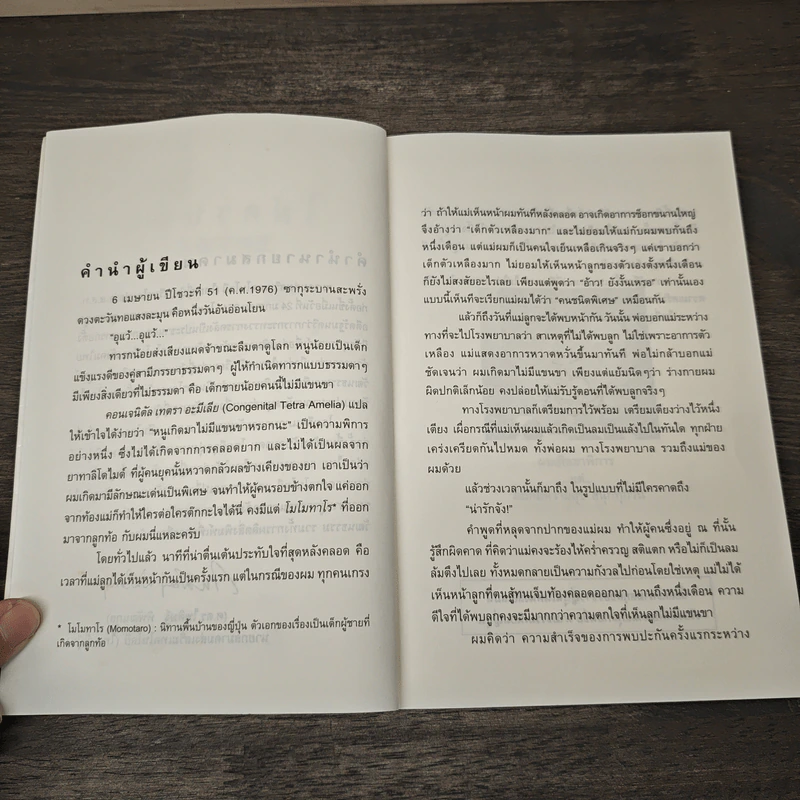 คำนำผู้เขียน
6 เมษายน ปีโชวะที่ 51 (ค.ศ.1976) ซากุระบานสะพรั่ง
ดวงตะวันทอแสงละมุน คือหนึ่งวันอันอ่อนโยน
“อุแว้...อุแว้...”
ทารกน้อยส่งเสียงแผดจ้าขณะลืมตาดูโลก หนูน้อยเป็นเด็ก
แข็งแรงดีของคู่สามีภรรยาธรรมดาๆ ผู้ให้กำเนิดทารกแบบธรรมดาๆ
มีเพียงสิ่งเดียวที่ไม่ธรรมดา คือ เด็กชายน้อยคนนี้ไม่มีแขนขา
คอนเจนิตัล เทตรา อะมีเลีย (Congenital Tetra Amelia) แปล
ให้เข้าใจได้ง่ายว่า “หนูเกิดมาไม่มีแขนขาหรอกนะ” เป็นความพิการ
อย่างหนึ่ง ซึ่งไม่ได้เกิดจากการคลอดยาก และไม่ได้เป็นผลจาก
ยาทาลิโดไมด์ ที่ผู้คนยุคนั้นหวาดกลัวผลข้างเคียงของยา เอาเป็นว่า
ผมเกิดมามีลักษณะเด่นเป็นพิเศษ จนทำให้ผู้คนรอบข้างตกใจ แค่ออก
จากท้องแม่ก็ทำให้ใครต่อใครตักกะใจได้นี่ คงมีแต่ โมโมทาโร* ที่ออก
มาจากลูกท้อ กับผมนี่แหละครับ
โดยทั่วไปแล้ว นาทีที่น่าตื่นเต้นประทับใจที่สุดหลังคลอด คือ
เวลาที่แม่ลูกได้เห็นหน้ากันเป็นครั้งแรก แต่ในกรณีของผม ทุกคนเกรง
* โมโมทาโร (Momotaro) : นิทานพื้นบ้านของญี่ปุ่น ตัวเอกของเรื่องเป็นเด็กผู้ชายที่
เกิดจากลูกท้อ
ว่า ถ้าให้แม่เห็นหน้าผมทันทีหลังคลอด อาจเกิดอาการช็อกขนานใหญ่
จึงอ้างว่า “เด็กตัวเหลืองมาก” และไม่ยอมให้แม่กับผมพบกันถึง
หนึ่งเดือน แต่แม่ผมก็เป็นคนใจเย็นเหลือเกินจริงๆ แค่เขาบอกว่า
เด็กตัวเหลืองมาก ไม่ยอมให้เห็นหน้าลูกของตัวเองตั้งหนึ่งเดือน
ก็ยังไม่สงสัยอะไรเลย เพียงแต่พูดว่า “อ้าว! ยังงั้นเหรอ” เท่านั้นเอง
แบบนี้เห็นทีจะเรียกแม่ผมได้ว่า “คนชนิดพิเศษ” เหมือนกัน
แล้วก็ถึงวันที่แม่ลูกจะได้พบหน้ากัน วันนั้น พ่อบอกแม่ระหว่าง
ทางที่จะไปโรงพยาบาลว่า สาเหตุที่ไม่ได้พบลูก ไม่ใช่เพราะอาการตัว
เหลือง แม่แสดงอาการหวาดหวั่นขึ้นมาทันที พ่อไม่กล้าบอกแม่
ชัดเจนว่า ผมเกิดมาไม่มีแขนขา เพียงแต่แย้มนิดๆว่า ร่างกายผม
ผิดปกติเล็กน้อย คงปล่อยให้แม่รับรู้ตอนที่ได้พบลูกจริงๆ
ทางโรงพยาบาลก็เตรียมการไว้พร้อม เตรียมเตียงว่างไว้หนึ่ง
เตียง เผื่อกรณีที่แม่เห็นผมแล้วเกิดเป็นลมเป็นแล้งไปในทันใด ทุกฝ่าย
เคร่งเครียดกันไปหมด ทั้งพ่อผม ทางโรงพยาบาล รวมถึงแม่ของ
ผมด้วย
แล้วช่วงเวลานั้นก็มาถึง ในรูปแบบที่ไม่มีใครคาดถึง
“น่ารักจัง!”
คำพูดที่หลุดจากปากของแม่ผม ทำให้ผู้คนซึ่งอยู่ ณ ที่นั้น
รู้สึกผิดคาด ที่คิดว่าแม่คงจะร้องไห้คร่ำครวญ สติแตก หรือไม่ก็เป็นลม
ล้มตึงไปเลย ทั้งหมดกลายเป็นความกังวลไปก่อนโดยใช่เหตุ แม่ไม่ได้
เห็นหน้าลูกที่ตนสู้ทนเจ็บท้องคลอดออกมา นานถึงหนึ่งเดือน ความ
ดีใจที่ได้พบลูกคงจะมีมากกว่าความตกใจที่เห็นลูกไม่มีแขนขา
ผมคิดว่า ความสำเร็จของการพบปะกันครั้งแรกระหว่าง